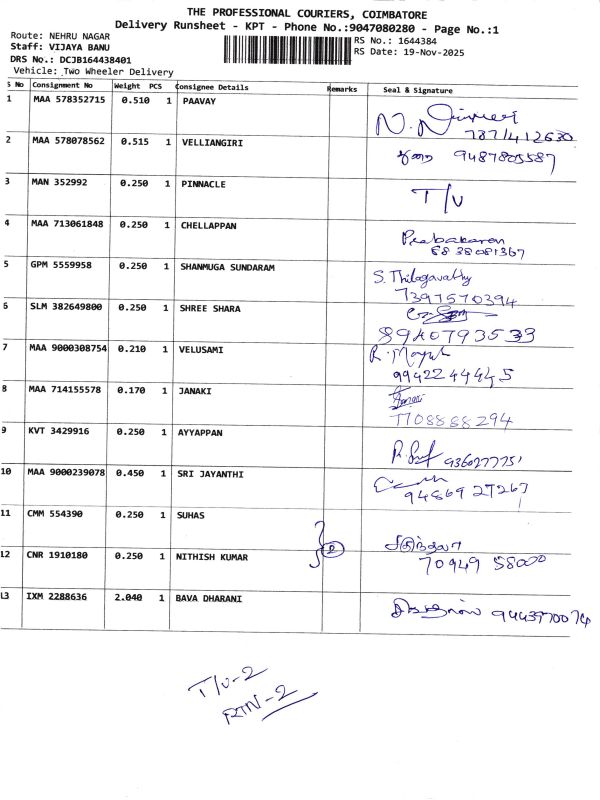 THE PROFESSIONAL COURIERS, COIMBATORE
Delivery Runsheet - KPT - Phone No.:9047080280 - Page No.:1
Route: NEHRU NAGAR
RS No.: 1644384
Staff: VIJAYA BANU
RS Date: 19-Nov-2025
DRS No.: DCJB164438401
Vehicle: Two Wheeler Delivery
S No Consignment No Weight PCS Consignee Details Remarks Seal & Signature
1 MAA 578352715 0.510 1 PAAVAY
7871412630
2 MAA 578078562 0.515 1 VELLIANGIRI
9487805587
3 MAN 352992 0.250 1 PINNACLE T/V
4 MAA 713061848 0.250 1 CHELLAPPAN Prabakaran
8838081367
5 GPM 5559958 0.250 1 SHANMUGA SUNDARAM S. Thilagavathy
7397570394
6 SLM 382649800 0.250 1 SHREE SHARA
8940793533
7 MAA 9000308754 0.210 1 VELUSAMI
9942244445
8 MAA 714155578 0.170 1 JANAKI
7708888294
9 KVT 3429916 0.250 1 AYYAPPAN 9360277751
10 MAA 9000239078 0.450 1 SRI JAYANTHI
94869 27267
11 CMM 554390 0.250 1 SUHAS
12 CNR 1910180 0.250 1 NITHISH KUMAR 2
70949 58000
13 IXM 2288636 2.040 1 BAVA DHARANI 9443970074
T/V-2
RTN-2